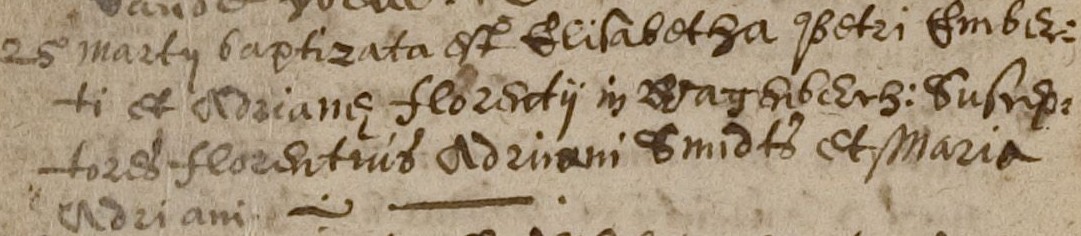 25 Martij baptizata est Elisabetha Petri Ember:
ti et Adrianę Florentij in Wagenberch: Suscep:
tores Florentius Adriani Smidts et Maria
Adriani